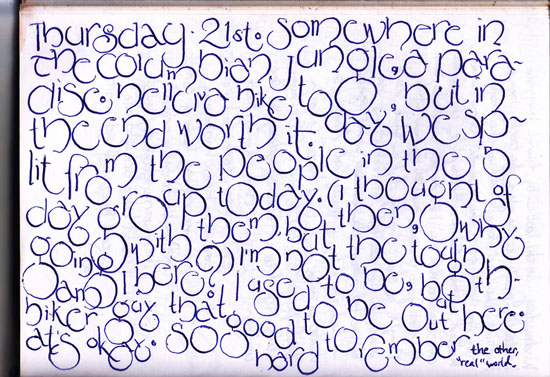 Thursday. 21st. somewhere in
the columbian jungle, a para-
dise. hell'uva hike today, but in
the end worth it. we sp-
lit from the people in the 5
day group today. (i thought of
going with them but then, why
am I here?) I'm not the tough
hiker guy that I used to be, but th-
at's okay. so good to be out here.
hard to rember the other,
"real" world.